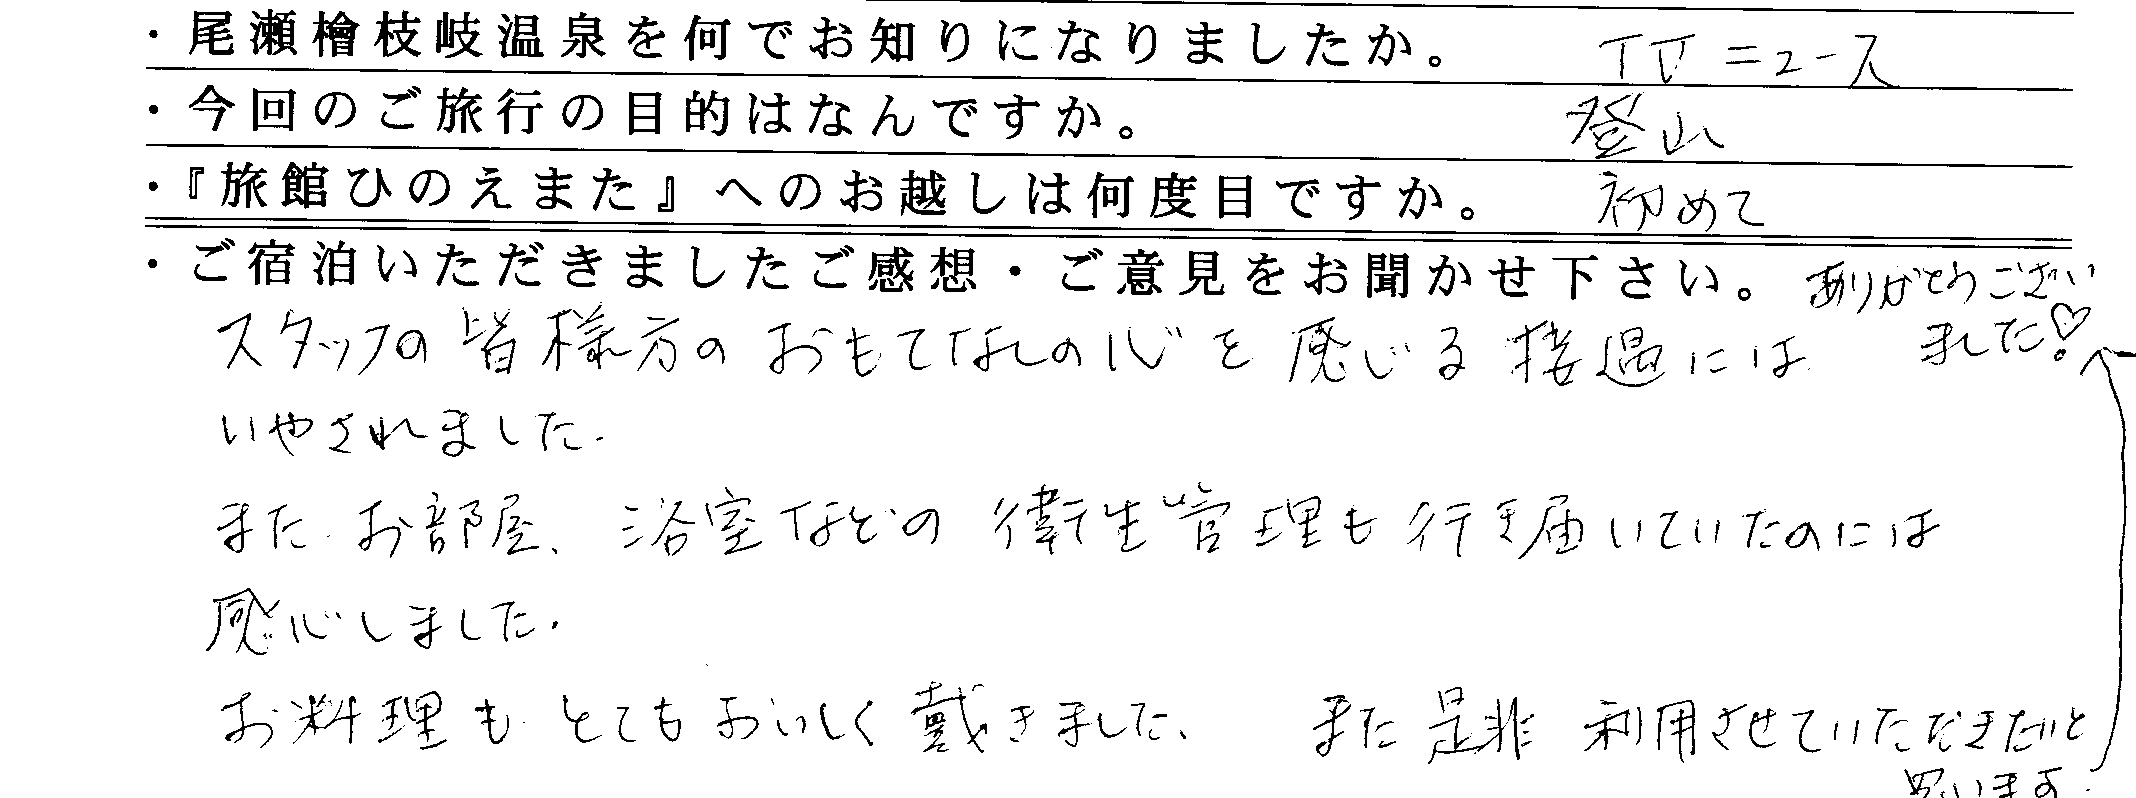 ・尾瀬檜枝岐温泉を何でお知りになりましたか。 TVニュース
・今回のご旅行の目的はなんですか。 登山
・『旅館ひのえまた』へのお越しは何度目ですか。 初めて
・ご宿泊いただきましたご感想・ご意見をお聞かせ下さい。
スタッフの皆様方のおもてなしの心を感じる接遇には
いやされました.
また お部屋、浴室などの衛生管理も行き届いていたのには
感心しました.
お料理も とてもおいしく戴きました、 また是非 利用させていただきたいと
思います.
ありがとうござい
ました♡